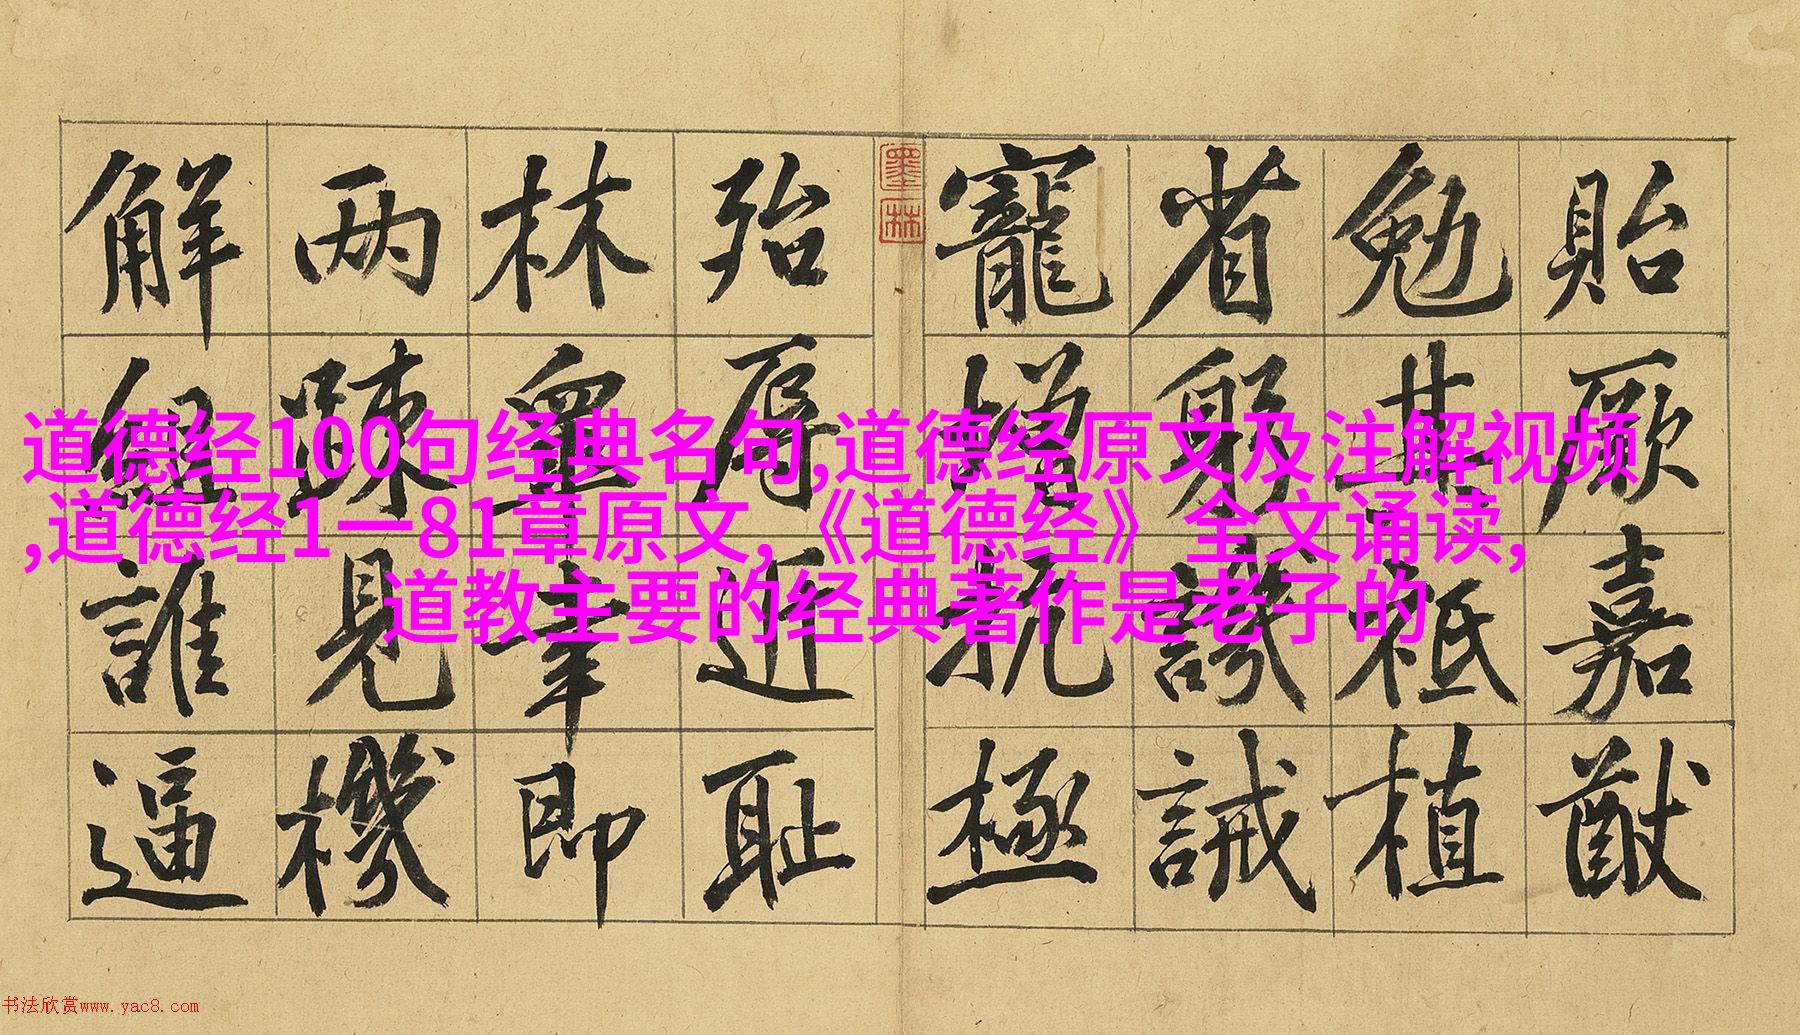 道德经100句经典名句,道德经原文及注解视频
,道德经1—81章原文,《道德经》全文诵读,
道教主要的经典著作是老子的
貽厥嘉猷
勉其祗植
省躬譏誡
寵增抗極
墨林
殆辱近耻
林皐幸即
两踈見機
解組誰逼
书法欣赏www.yac8.com